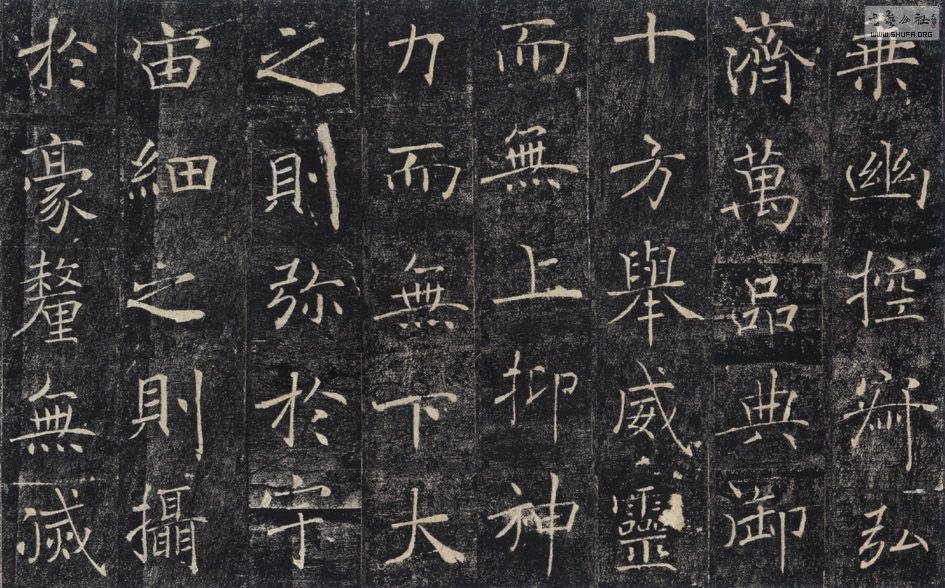 乘幽控寂弘
濟萬品典御
十方舉威靈
而無上抑神
力而無下大
之則弥於宇
宙細之則攝
於豪釐無滅
公社
WWW.SHUFA.ORG